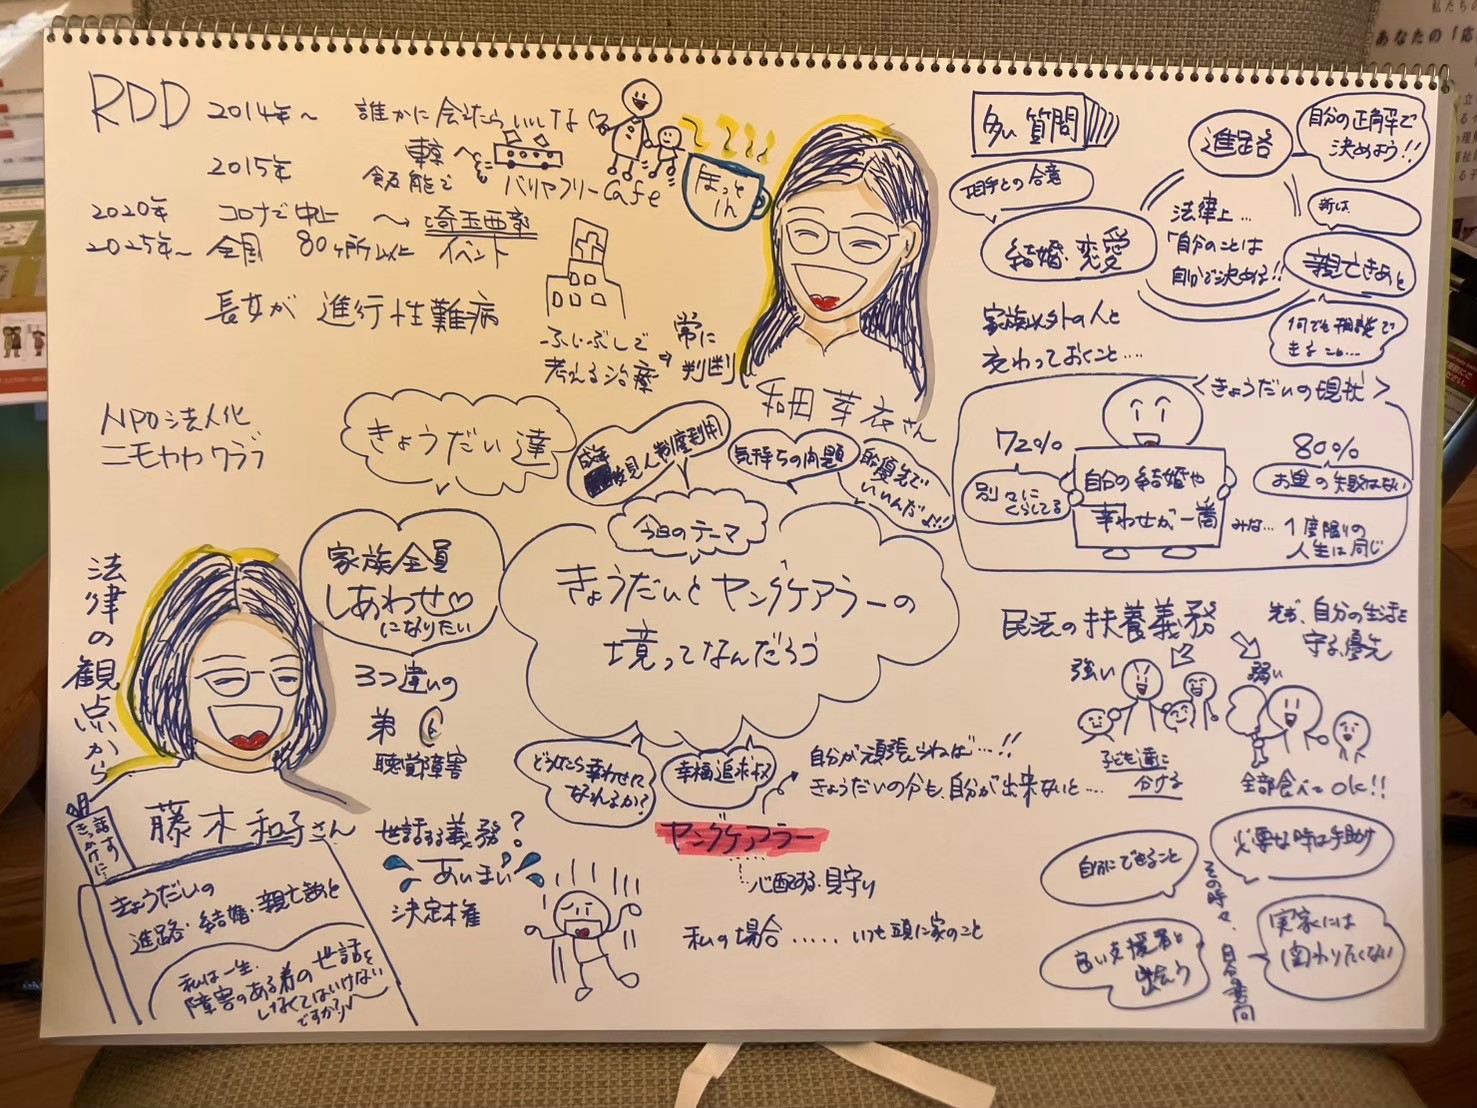 RDD 2014年〜 誰かに会えたらいいな
2015年
電車
飯能で バリヤフリーCafe
2020年 コロナで中止 → 埼玉西部
2025年〜 全国 80ヶ所以上 イベント
長女が 進行性難病
手さぐりで
NPO法人化
ニモカカクラブ
ほっと
くん
常に
判断
考える治療
和田芽衣さん
多い質問
進路
自分の正解で
決めよう!!
相手との合意
結婚・恋愛
法律上…
「自分のことは
自分で決める!!
親亡きあと
何でも相談で
きること…
家族以外の人と
交わっておくこと….
<きょうだいの現状>
72%
別々に
くらしてる
自分の結婚や
幸わせが一番
80%
お金の失敗はない
みな… 1度限りの
人生は同じ
きょうだい達
成年
後見人制度利用
気持ちの問題
自分優先で
いいんだよ!!
今日のテーマ
きょうだいとヤングケアラーの
境ってなんだろう
家族全員
しあわせ♡
になりたい
3つ違いの
弟
聴覚障害
法律の観点から
藤木和子さん
話す
きっかけに…
きょうだいの
進路・結婚・親亡きあと
私は一生、
障害のある弟の世話を
しなくてはいけない
ですか?
世話する義務?
あいまい
決定権
どうしたら幸わせに
なれるか?
幸福追求权
自分が頑張らねば…!!
きょうだいの分も、自分が出来ないと….
ヤングケアラー
心配する・見守り
私の場合….. いつも頭に家のこと
民法の扶養義務
先ず、自分の生活を
守る、優先
強い
弱い
子ども達に
分ける
全部食べてOK!!
自分にできること
必要な時は手助け
良い支援者と
出会う
実家には
関わりたくない
その時々、自分の意向